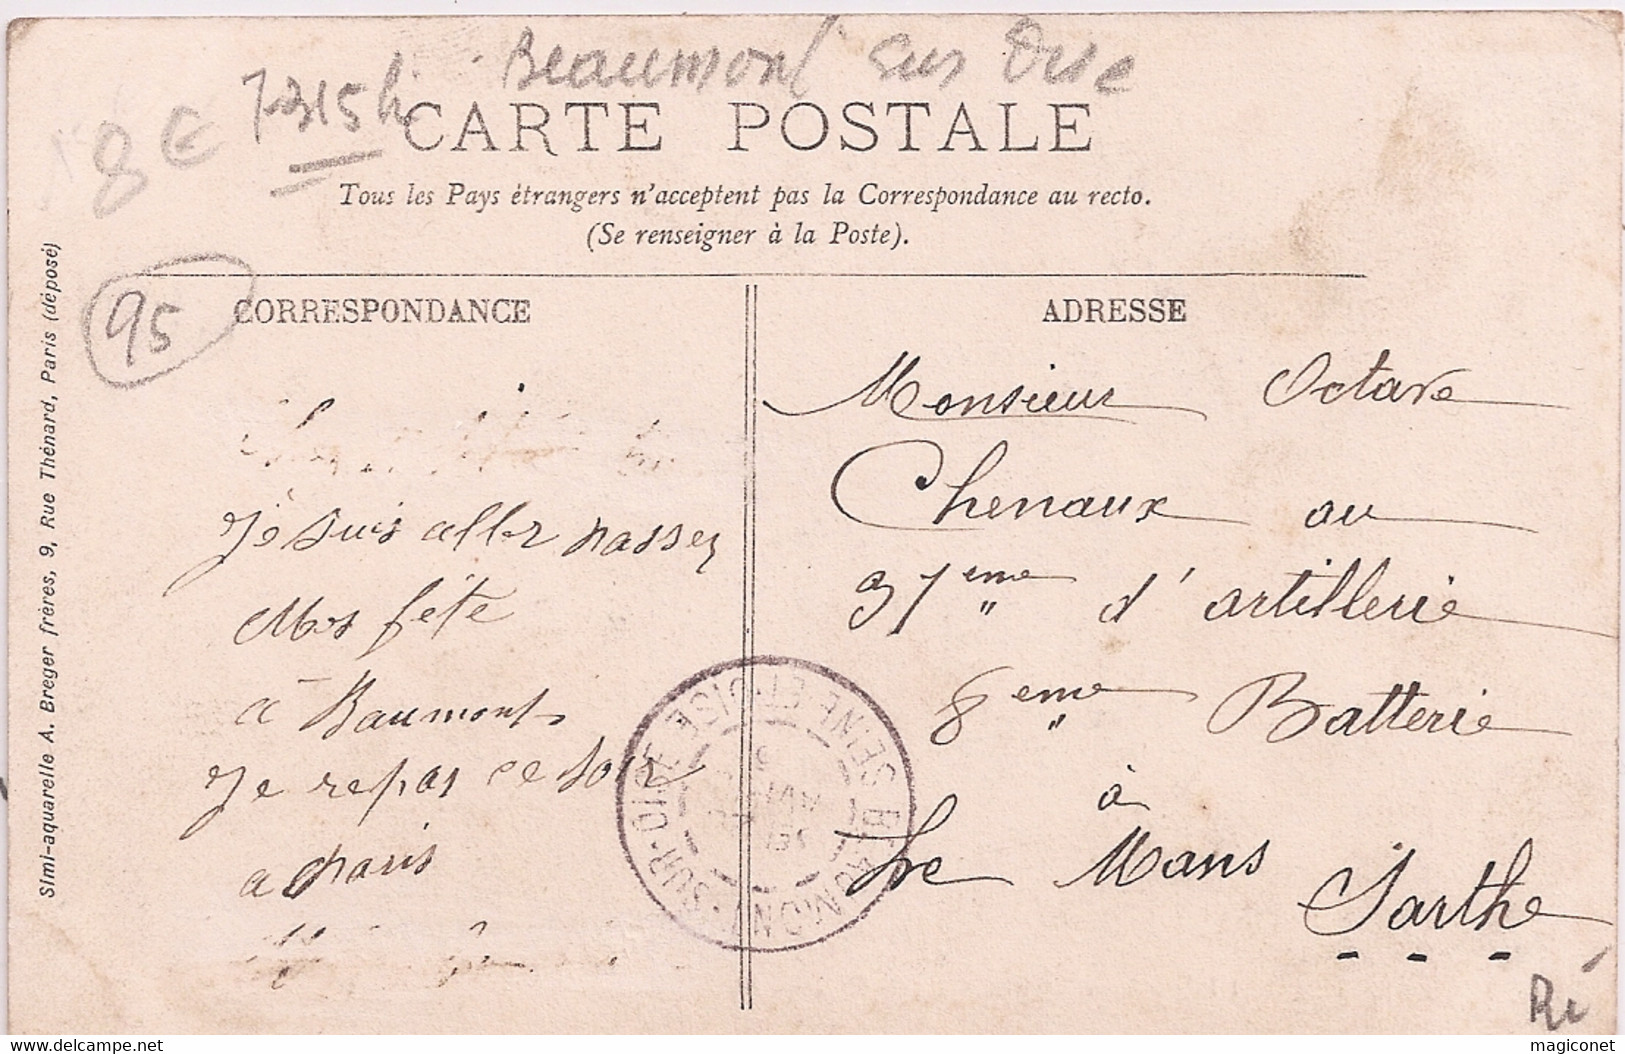 Beaumont sur Oise
8 €
CARTE POSTALE
Tous les Pays étrangers n'acceptent pas la Correspondance au recto.
(Se renseigner à la Poste).
95
CORRESPONDANCE
ADRESSE
Je suis aller passer
Mes fête
à Baumont
Je repas ce soir
a paris
Monsieur Octave
Chenaux au
31eme d'artillerie
8eme Batterie
à
Le Mans
Sarthe
BEAUMONT-SUR-OISE SEINE-ET-OISE
Simi-aquarelle A. Breger frères, 9, Rue Thénard, Paris (déposé)
delcampe.net
magiconet